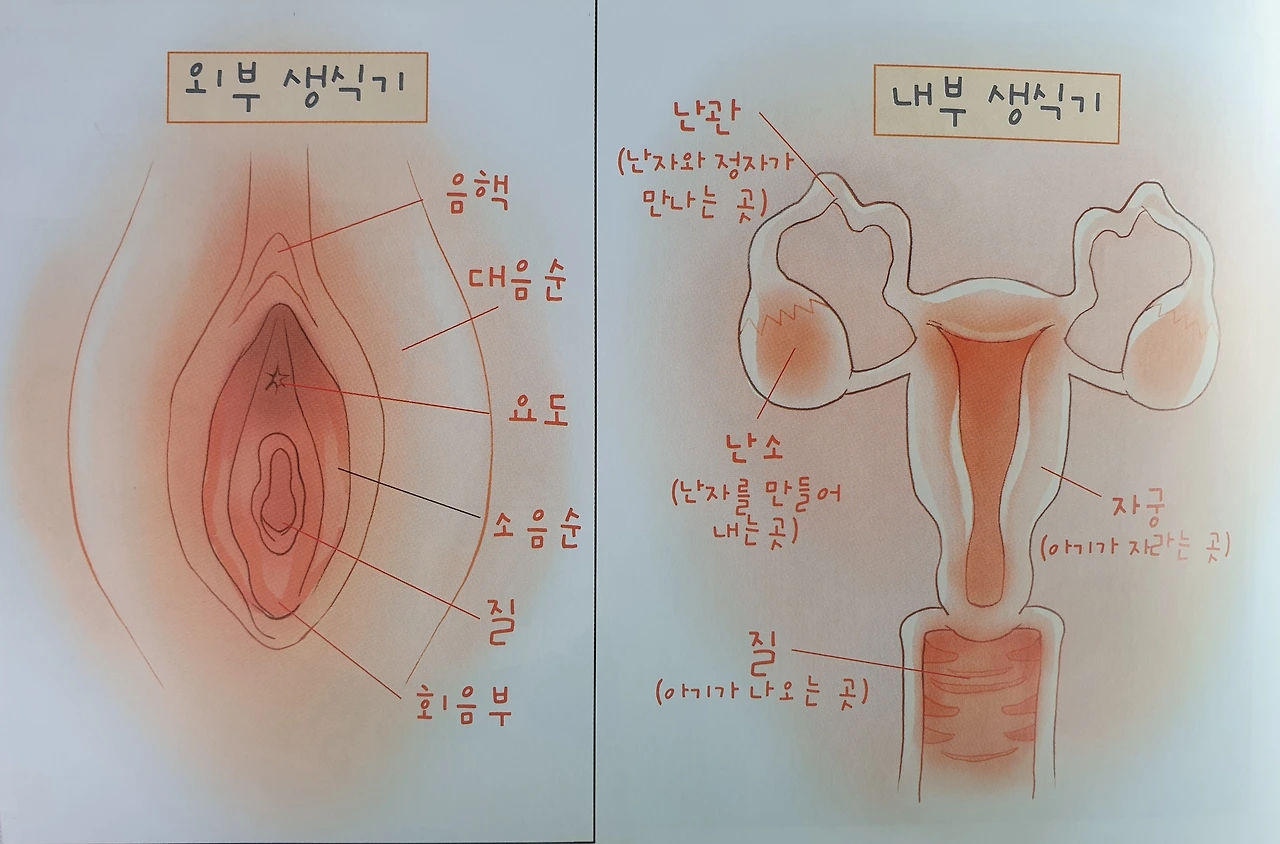 외부 생식기
음핵
대음순
요도
소음순
질
회음부
내부 생식기
난관
(난자와 정자가
만나는 곳)
난소
(난자를 만들어
내는 곳)
자궁
(아기가 자라는 곳)
질
(아기가 나오는 곳)